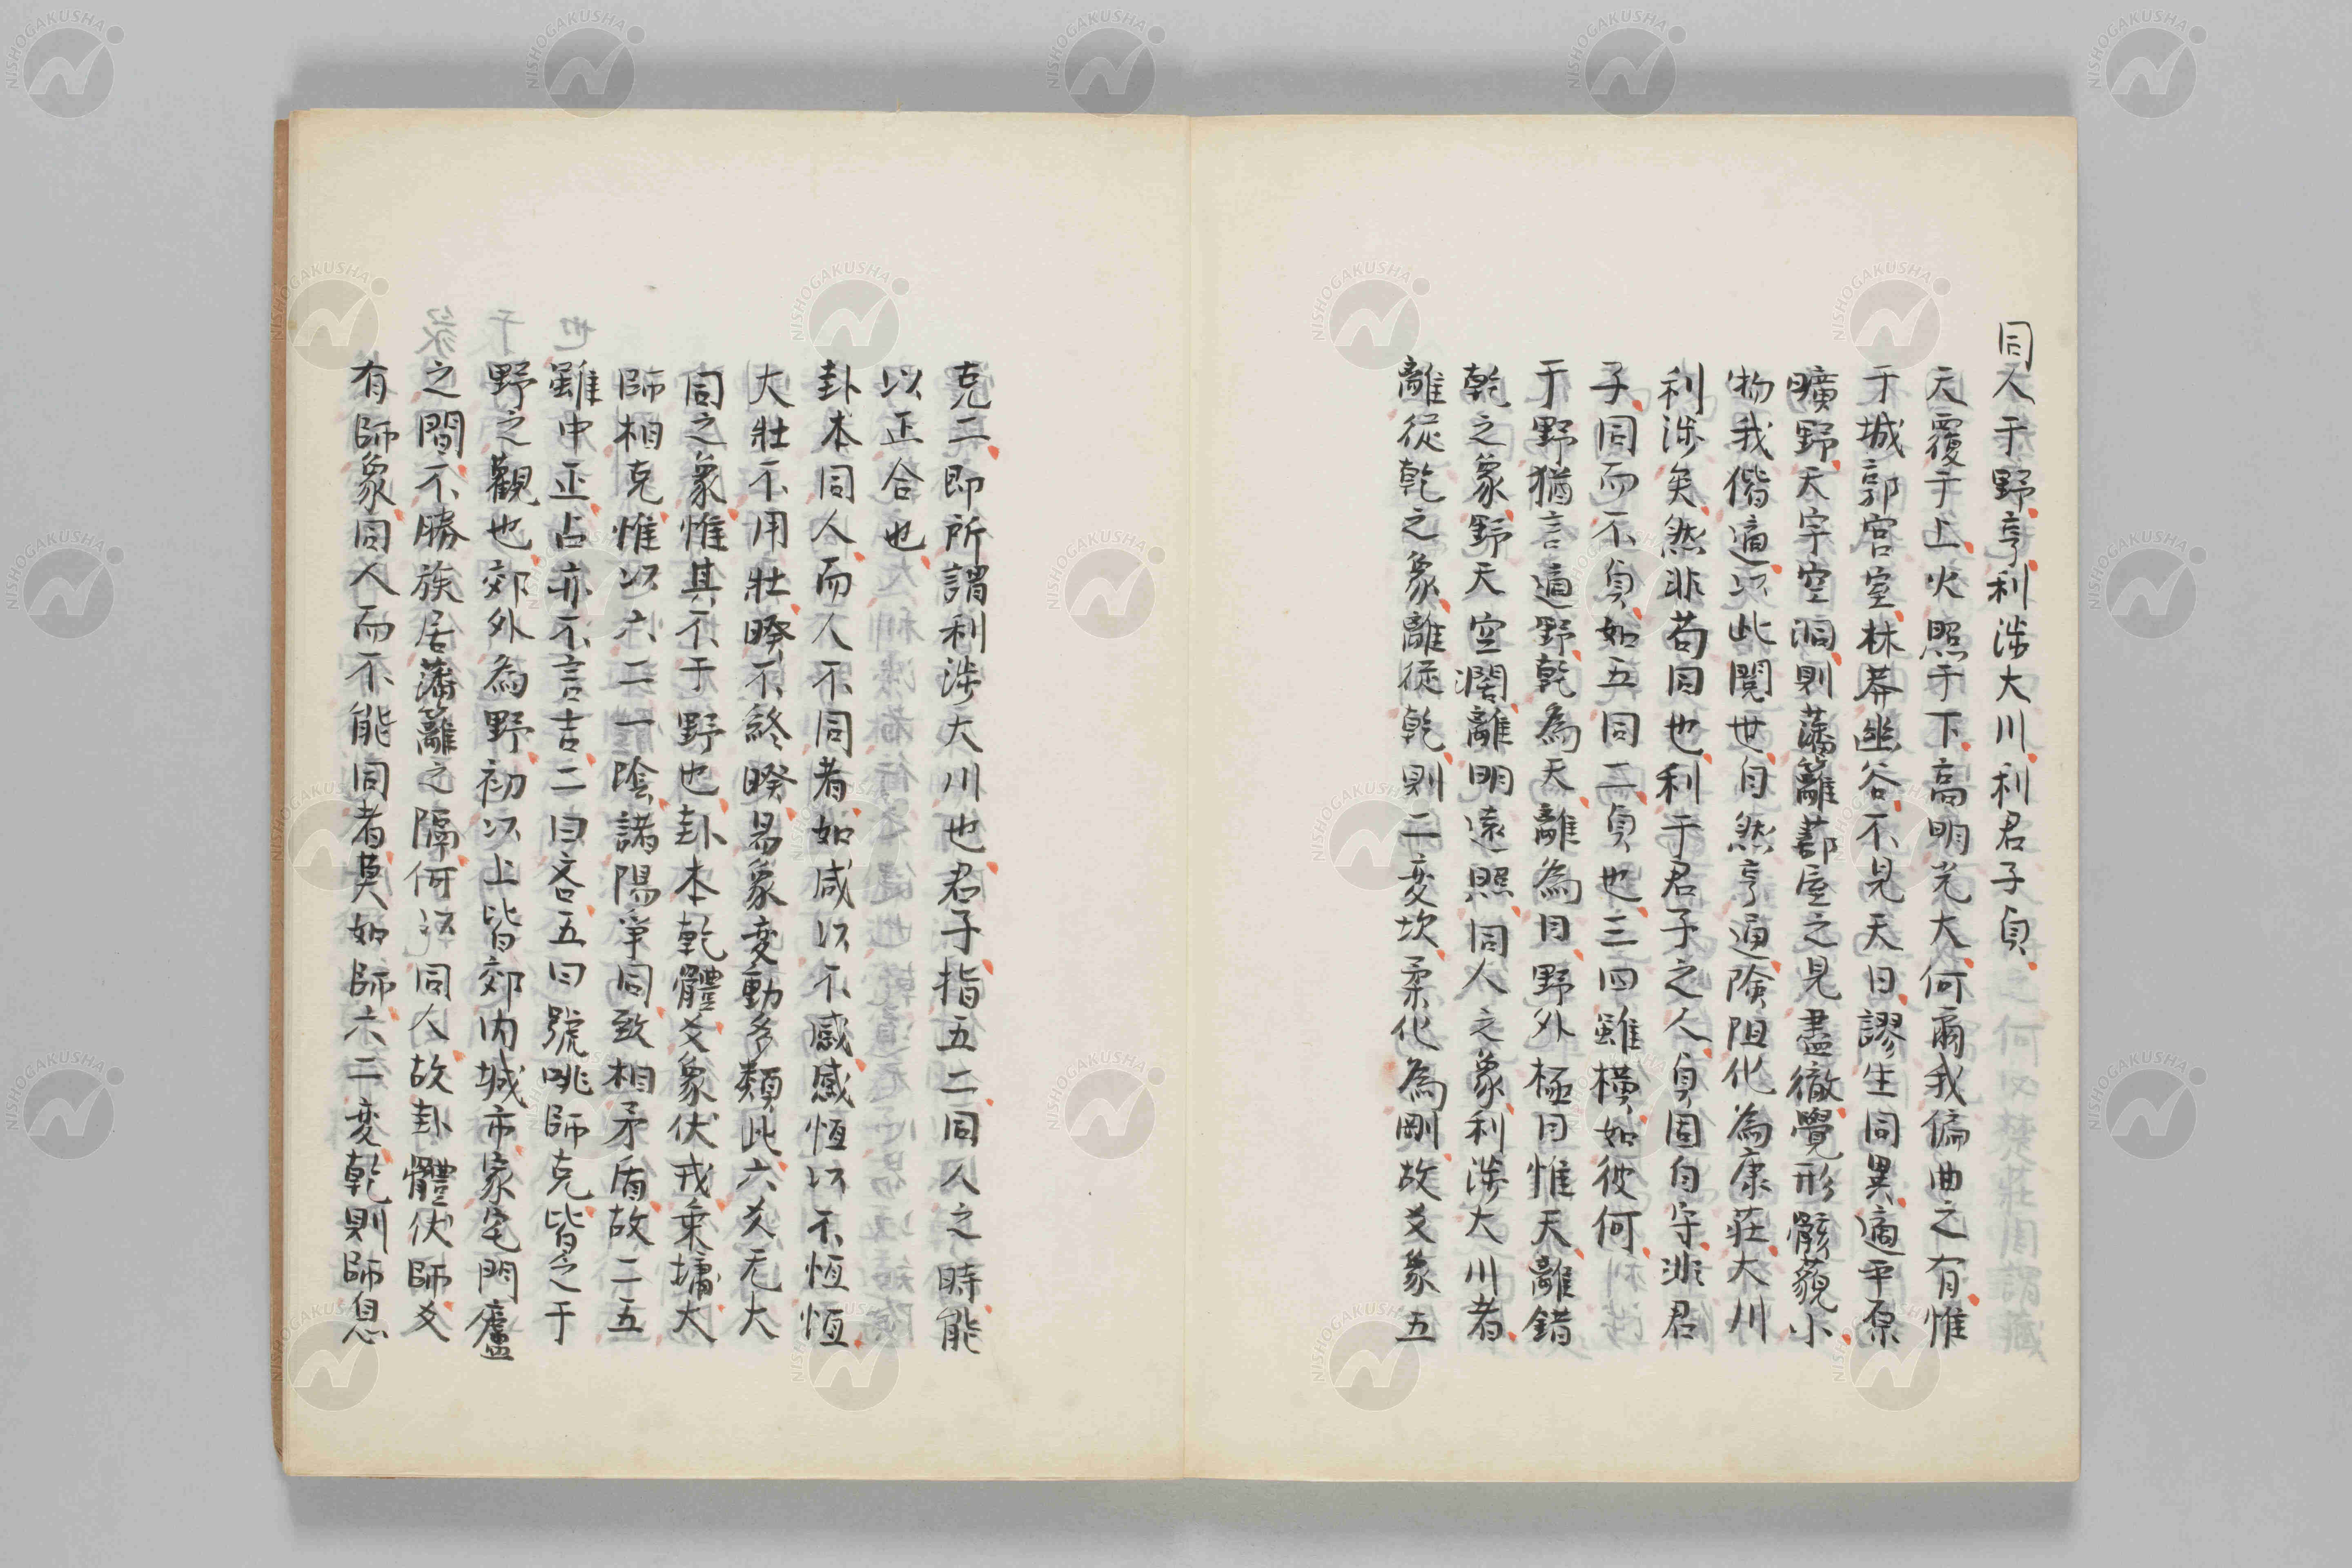 同人于野亨利涉大川利君子貞
天覆于上火照于下高明光大何爾我偏曲之有惟
于城郭宮室林莽幽谷不見天日謬生同異適平原
曠野天宇空洞則藩籬蔀屋之見盡徹覺形骸藐小
物我偕適以此閱世自然亨通險阻化為康莊大川
利涉矣然非苟同也利于君子之人貞固自守非君
子同而不貞如五同二貞也三四雖橫如彼何
于野猶言適野乾為天離為目野外極目惟天離錯
乾之象野天空濶離明遠照同人之象利涉大川者
離從乾之象離從乾乾則二変坎柔化為剛故爻象五
克二即所謂利涉大川也君子指五二同人之時能
以正合也
卦本同人而人不同者如咸以不感感恆以不恆恆
大壯不用壯睽不終睽易象变動多類此六爻无大
同之象惟其不于野也卦本乾體爻象伏戎乘墉大
師相克惟以六二一陰諸陽爭同致相矛盾故二五
雖中正占亦不言吉二曰吝五曰號咷師克皆乏于
野之觀也郊外為野初以上皆郊內城市家宅門廬
之間不勝族居藩籬之隔何以同人故卦體伏師爻
有師象同人而不能同者莫如師六二变乾則師息
NISHOGAKUSHA